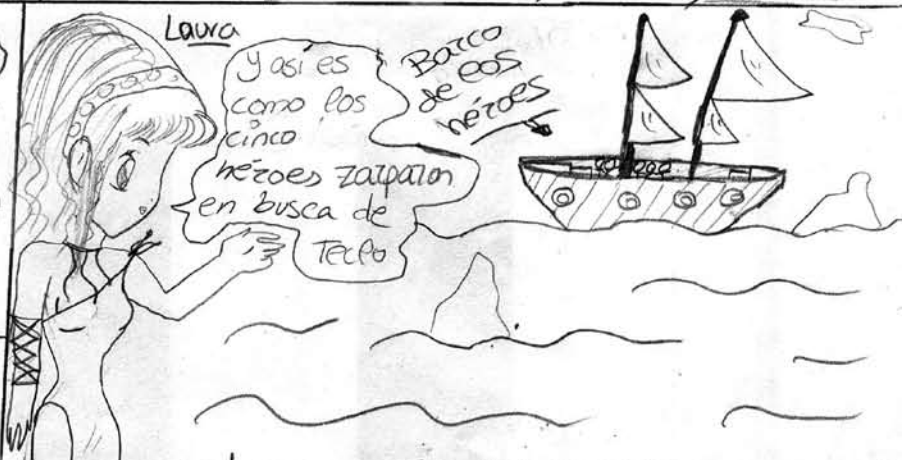 Laura
Y así es
como los
cinco
héroes zarparon
en busca de
Barco
de los
héroes